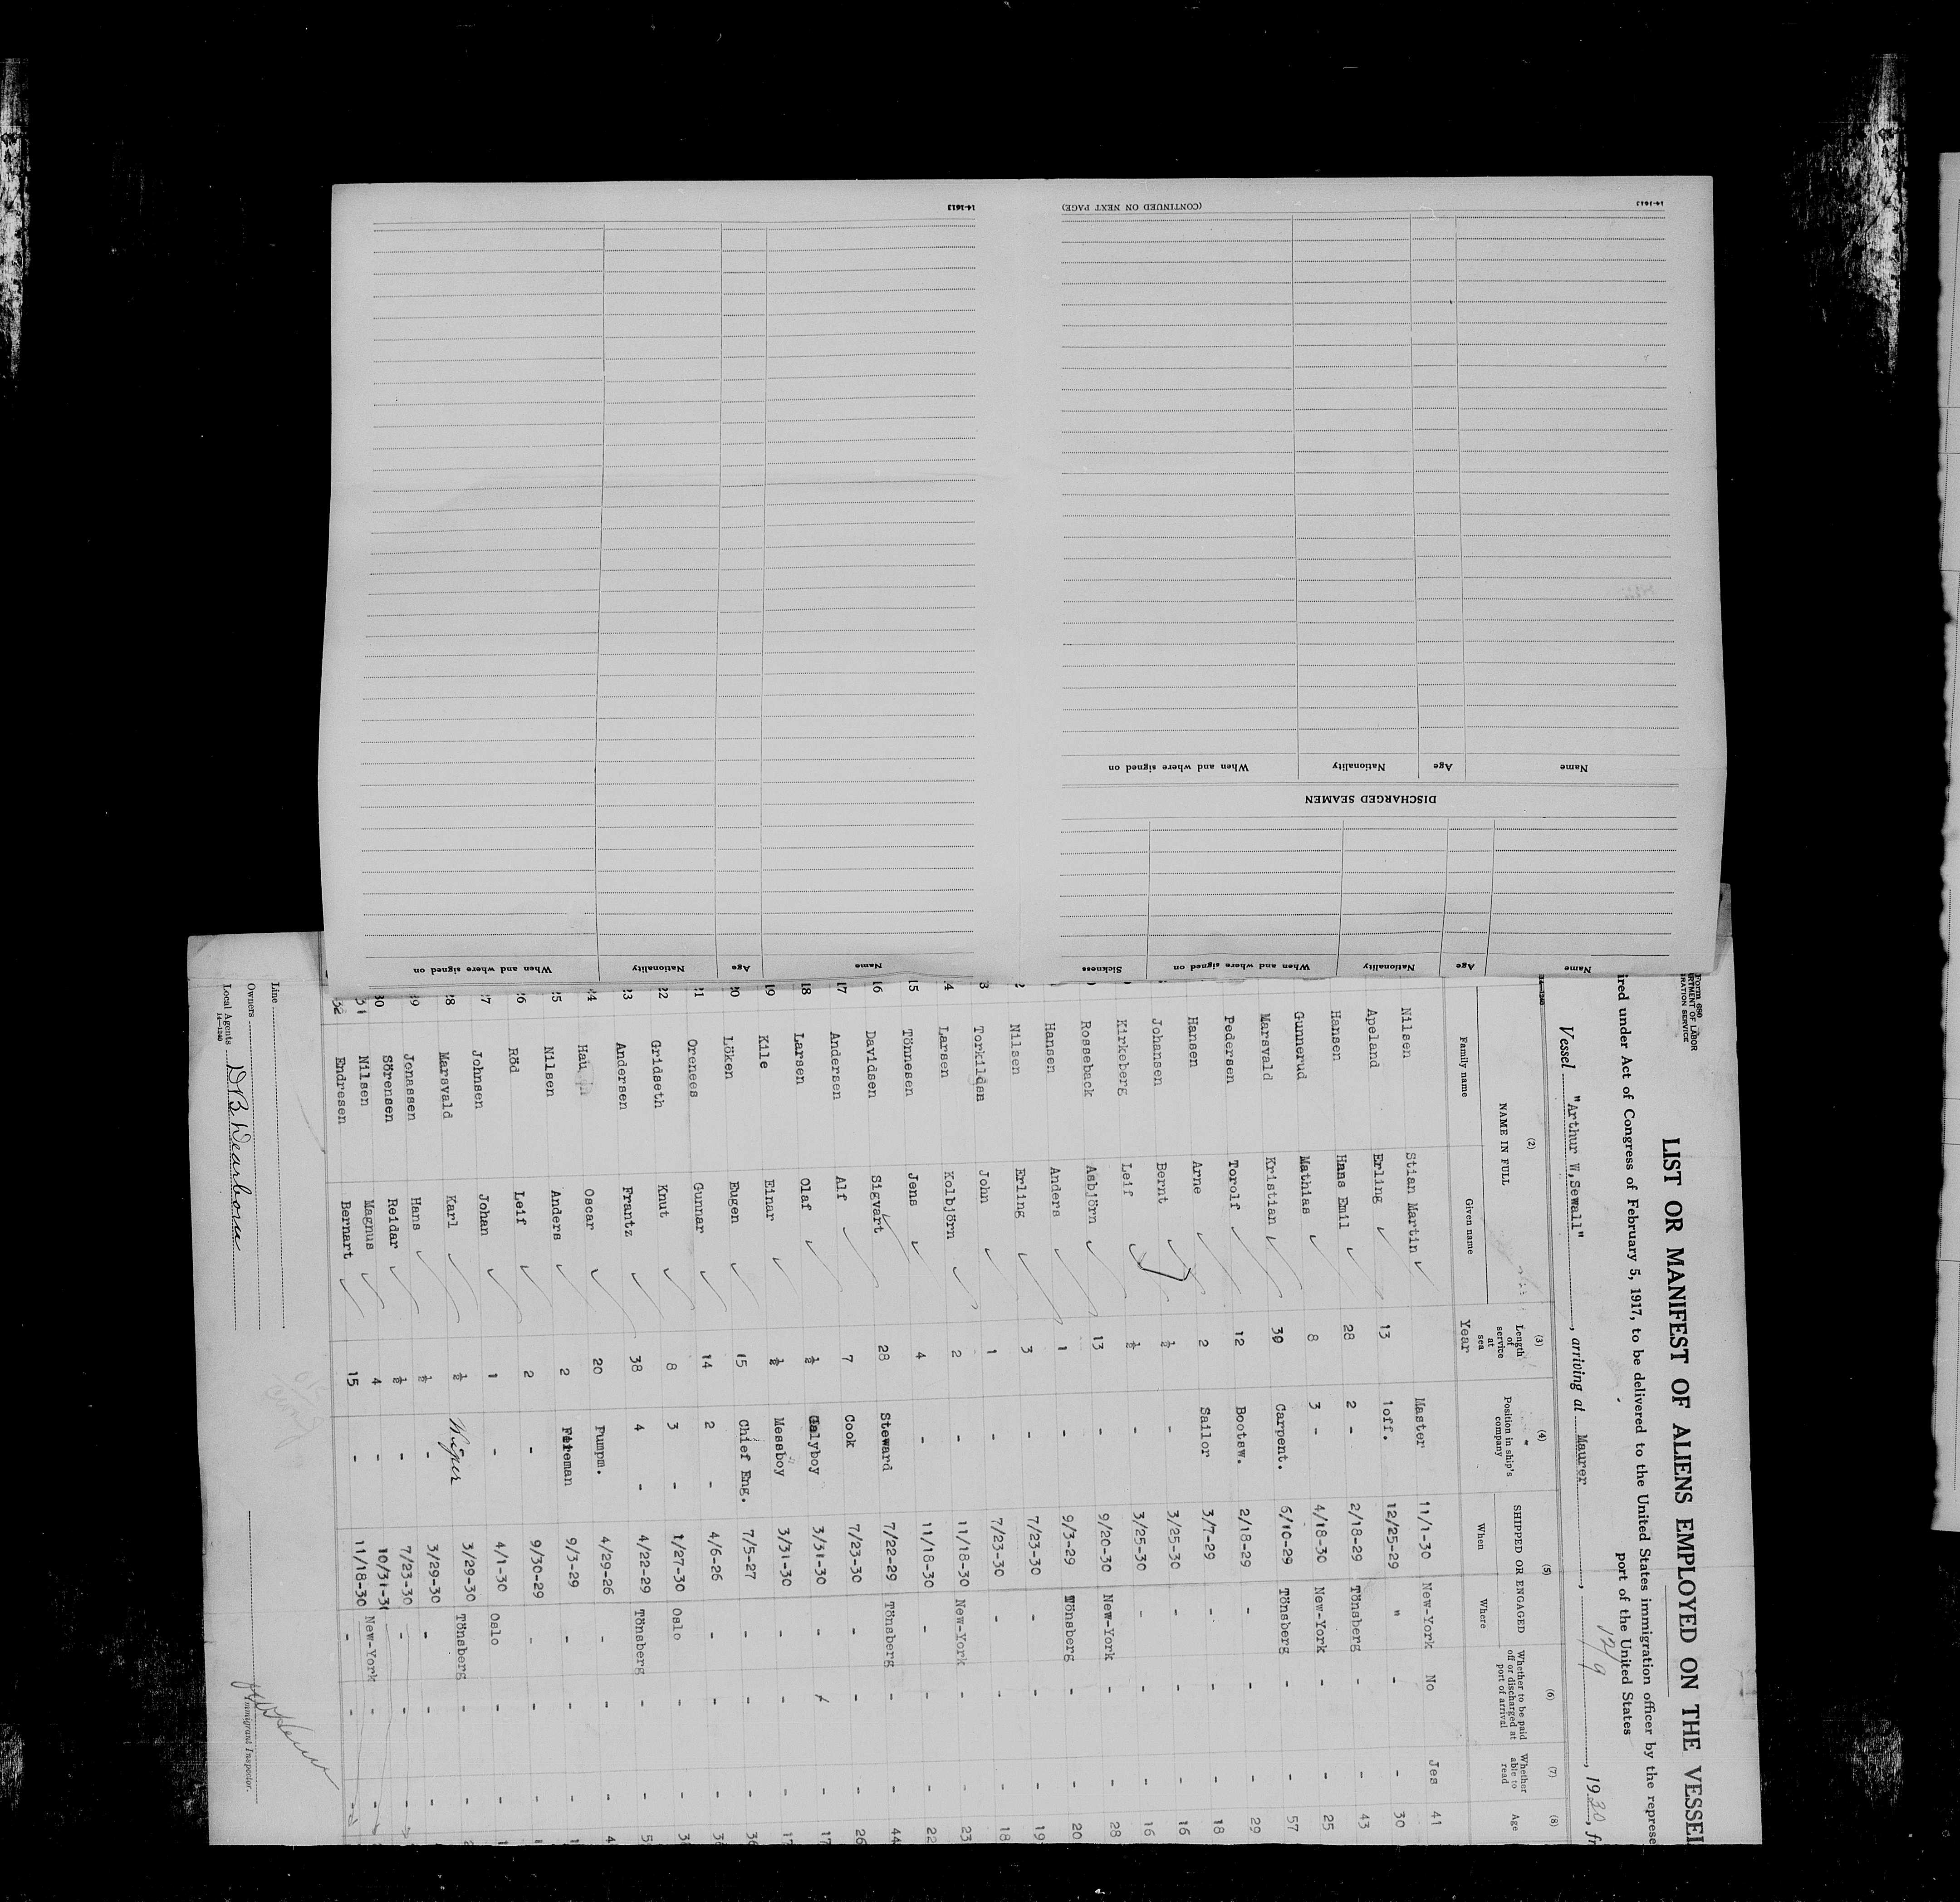 14-1613
(CONTINUED ON NEXT PAGE)
14-1613
Name
Age
Nationality
When and where signed on
DISCHARGED SEAMEN
Name
Age
Nationality
When and where signed on
Sickness
Name
Age
Nationality
When and where signed on
Form 680
LIST OR MANIFEST OF ALIENS EMPLOYED ON THE VESSEL
ired under Act of Congress of February 5, 1917, to be delivered to the United States immigration officer by the represe
port of the United States
Vessel "Arthur W.Sewall", arriving at Maurer, 12/9, 1930, fr
(2) (3) (4) (5) (6) (7) (8)
NAME IN FULL
Family name Given name
Length of service at sea
Year
Position in ship's company
SHIPPED OR ENGAGED
When Where
Whether to be paid off or discharged at port of arrival
Whether able to read
Age
Nilsen Stian Martin Master 11/1-30 New-York No Jes 41
Apeland Erling 13 1off. 12/25-29 " - - 30
Hansen Hans Emil 28 2 - 2/18-29 Tönsberg - - 43
Gunnerud Mathias 8 3 - 4/18-30 New-York - - 25
Marsvald Kristian 30 Carpent. 6/10-29 Tönsberg - - 57
Pedersen Torolf 12 Bootsw. 2/18-29 - - - 29
Hansen Arne 2 Sailor 3/7-29 - - - 18
Johansen Bernt ½ - 3/25-30 - - - 16
Kirkeberg Leif ½ - 3/25-30 - - - 16
Rosseback Asbjörn 13 - 9/20-30 New-York - - 28
Hansen Anders 1 - 9/3-29 Tönsberg - - 20
2 Nilsen Erling 3 - 7/23-30 - - - 19
3 Torkildsn John 1 - 7/23-30 - - - 18
4 Larsen Kolbjörn 2 - 11/18-30 New-York - - 23
15 Tönnesen Jens 4 - 11/18-30 - - - 22
16 Davidsen Sigvart 28 Steward 7/22-29 Tönsberg - - 44
17 Andersen Alf 7 Cook 7/23-30 - - - 26
18 Larsen Olaf ½ Galyboy 3/31-30 - - - 17
19 Kile Einar ½ Messboy 3/31-30 - - - 17
20 Löken Eugen 15 Chief Eng. 7/5-27 - - - 36
21 Orenees Gunnar 14 2 - 4/6-26 - - - 36
22 Gridseth Knut 8 3 - 1/27-30 Oslo - - 3
23 Andersen Frantz 38 4 - 4/22-29 Tönsberg - - 5
24 Oscar 20 Pumpm. 4/29-26 - - - 4
25 Nilsen Anders 2 Fireman 9/3-29 - - -
26 Röd Leif 2 - 9/30-29 - - -
27 Johnsen Johan 1 - 4/1-30 Oslo - -
28 Marsvald Karl ½ Wiper 3/29-30 Tönsberg - -
29 Jonassen Hans ½ - 3/29-30 - - -
30 Sörensen Reidar ½ - 7/23-30 - - -
31 Nilsen Magnus 4 - 10/31-30 New-York - -
32 Endresen Bernart 15 - 11/18-30 - - -
Line
Owners
Local Agents D.B. Dearborn
14-1240
Immigrant Inspector.